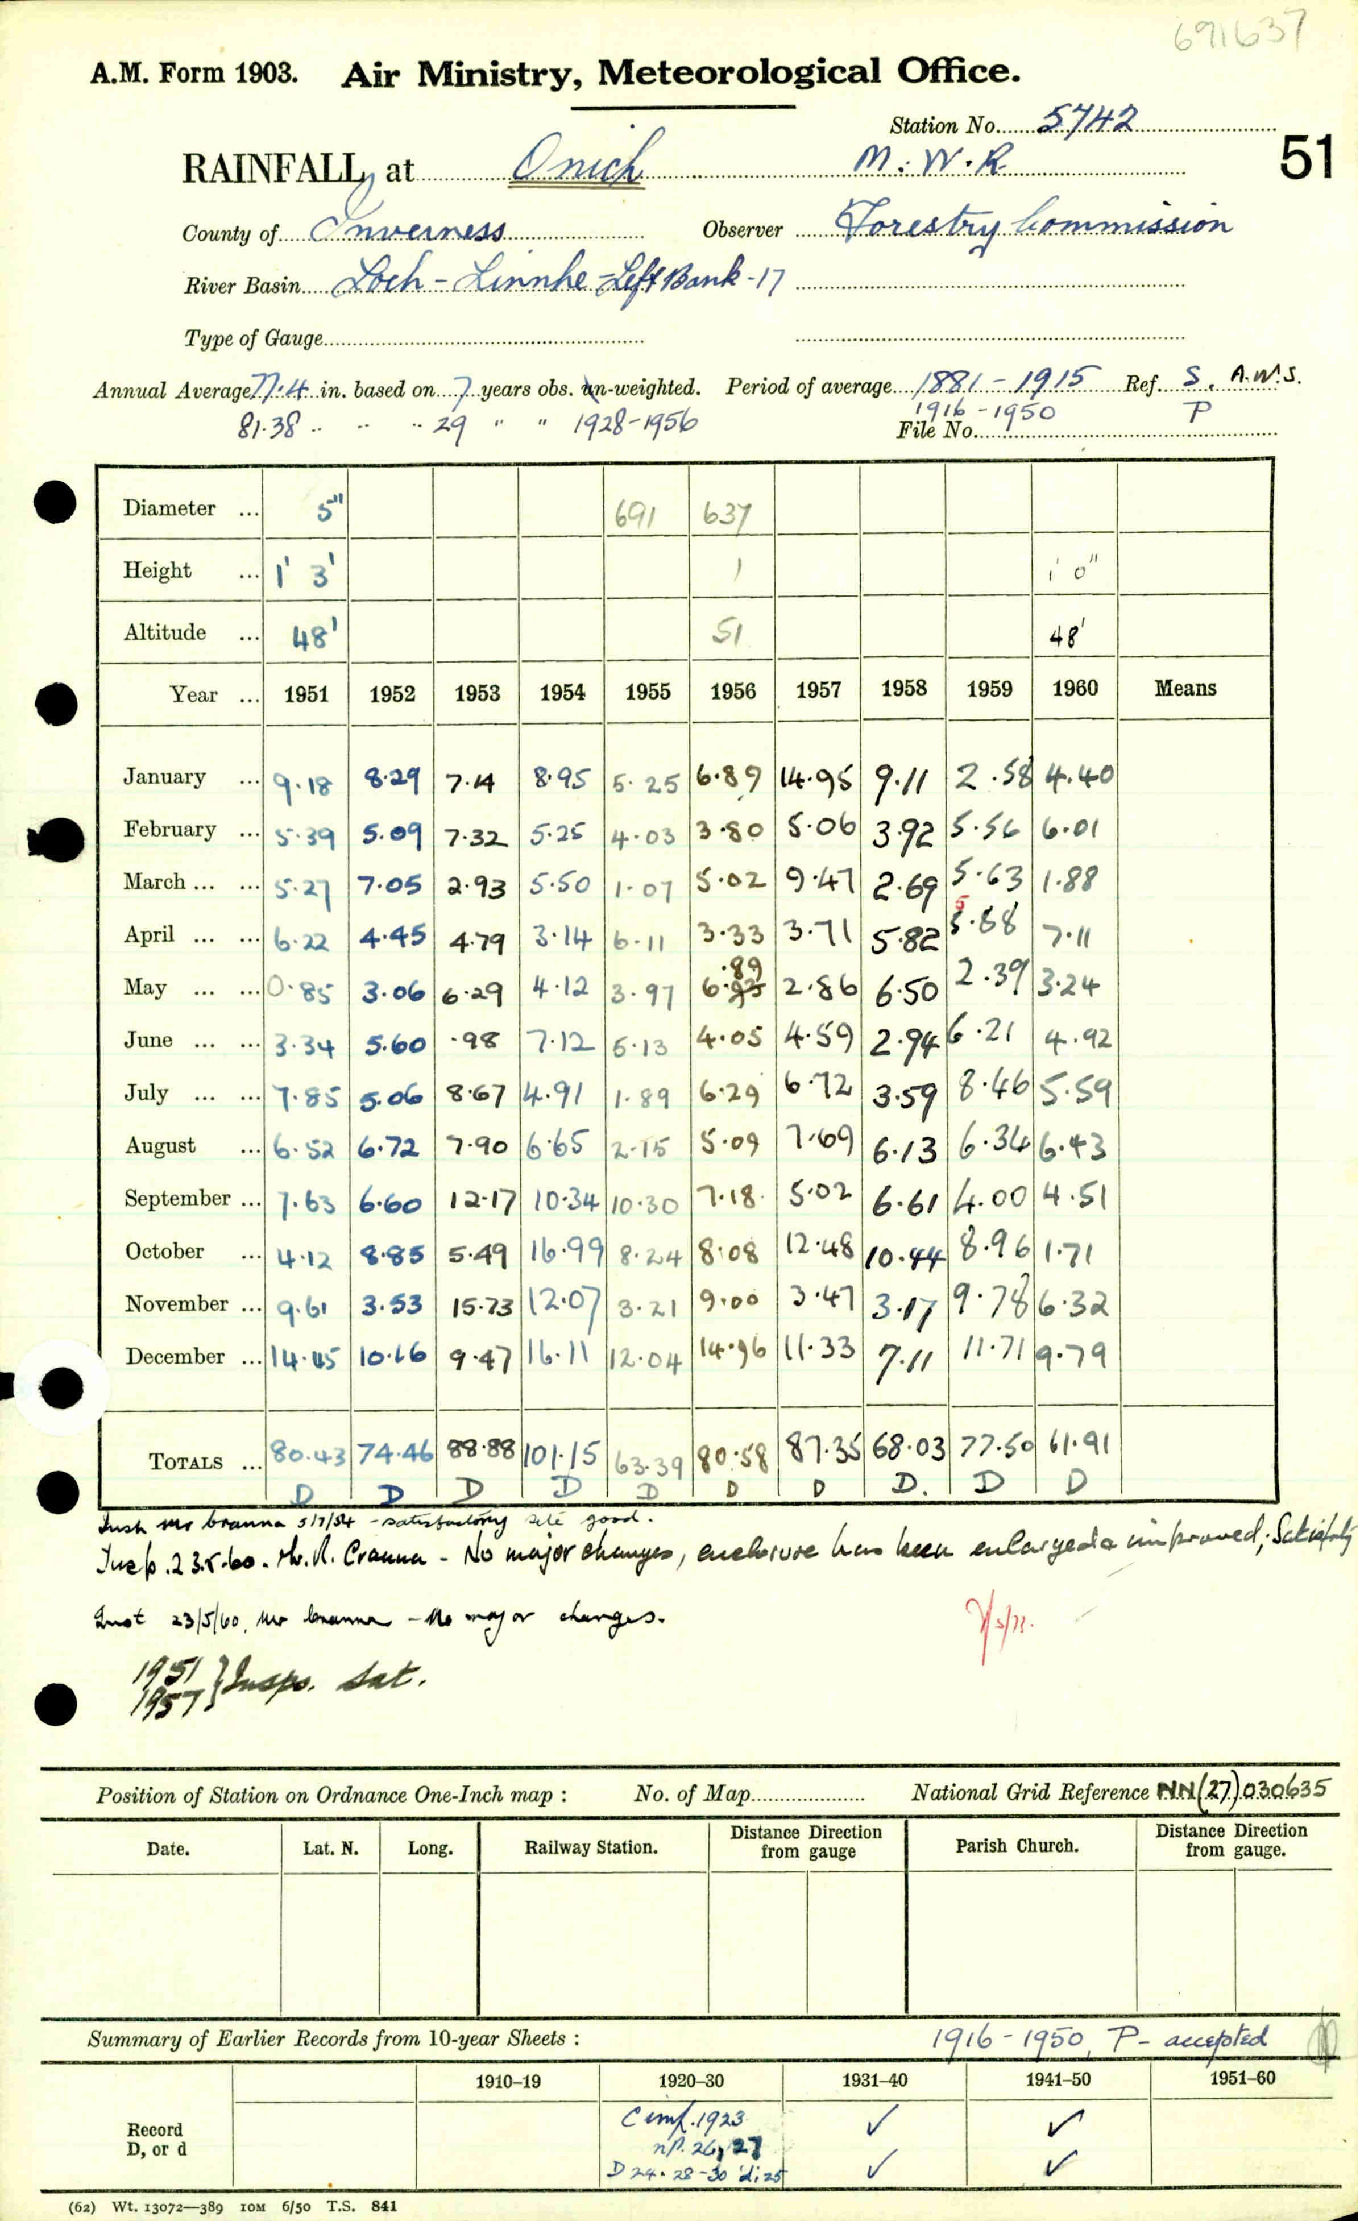 691637
A.M. Form 1903. Air Ministry, Meteorological Office.
Station No. 5742
RAINFALL, at Onich M.W.R 51
County of Inverness Observer Forestry Commission
River Basin Loch-Linnhe-Left Bank-17
Type of Gauge
Annual Average 77.4 in. based on 7 years obs. un-weighted. Period of average 1881-1915 Ref. S. A.W.S.
81.38 " " " 29 " " 1928-1956 1916-1950 P
File No.
Diameter ... 5" 691 637
Height ... 1' 3" 1 1' 0"
Altitude ... 48' 51 48'
Year ... 1951 1952 1953 1954 1955 1956 1957 1958 1959 1960 Means
January ... 9.18 8.29 7.14 8.95 5.25 6.89 14.95 9.11 2.58 4.40
February ... 5.39 5.09 7.32 5.25 4.03 3.80 5.06 3.92 5.56 6.01
March ... ... 5.27 7.05 2.93 5.50 1.07 5.02 9.47 2.69 5.63 1.88
April ... ... 6.22 4.45 4.79 3.14 6.11 3.33 3.71 5.82 5.88 7.11
May ... ... 0.85 3.06 6.29 4.12 3.97 6.89 2.86 6.50 2.39 3.24
June ... ... 3.34 5.60 .98 7.12 5.13 4.05 4.59 2.94 6.21 4.92
July ... ... 7.85 5.06 8.67 4.91 1.89 6.29 6.72 3.59 8.46 5.59
August ... 6.52 6.72 7.90 6.65 2.15 5.09 7.69 6.13 6.34 6.43
September ... 7.63 6.60 12.17 10.34 10.30 7.18 5.02 6.61 4.00 4.51
October ... 4.12 8.85 5.49 16.99 8.24 8.08 12.48 10.44 8.96 1.71
November ... 9.61 3.53 15.73 12.07 3.21 9.00 3.47 3.17 9.78 6.32
December ... 14.45 10.16 9.47 16.11 12.04 14.96 11.33 7.11 11.71 9.79
TOTALS ... 80.43 74.46 88.88 101.15 63.39 80.58 87.35 68.03 77.50 61.91
D D D D D D D D. D D
Insp. Mr Cranna 5/7/54 - satisfactory site good.
Insp. 23.5.60. Mr. A. Cranna - No major changes, enclosure has been enlarged & improved;
Inst 23/5/60, Mr Cranna - No major changes.
1951
1957 } Insps. Sat.
Position of Station on Ordnance One-Inch map : No. of Map National Grid Reference NN(27)030635
Date. Lat. N. Long. Railway Station. Distance Direction from gauge Parish Church. Distance Direction from gauge.
Summary of Earlier Records from 10-year Sheets : 1916-1950, P- accepted
1910–19 1920–30 1931–40 1941–50 1951–60
Record C imp. 1923 ✓ ✓
D, or d nP. 26, 27
D 24. 28-30 d: 25 ✓ ✓
(62) Wt. 13072—389 10M 6/50 T.S. 841